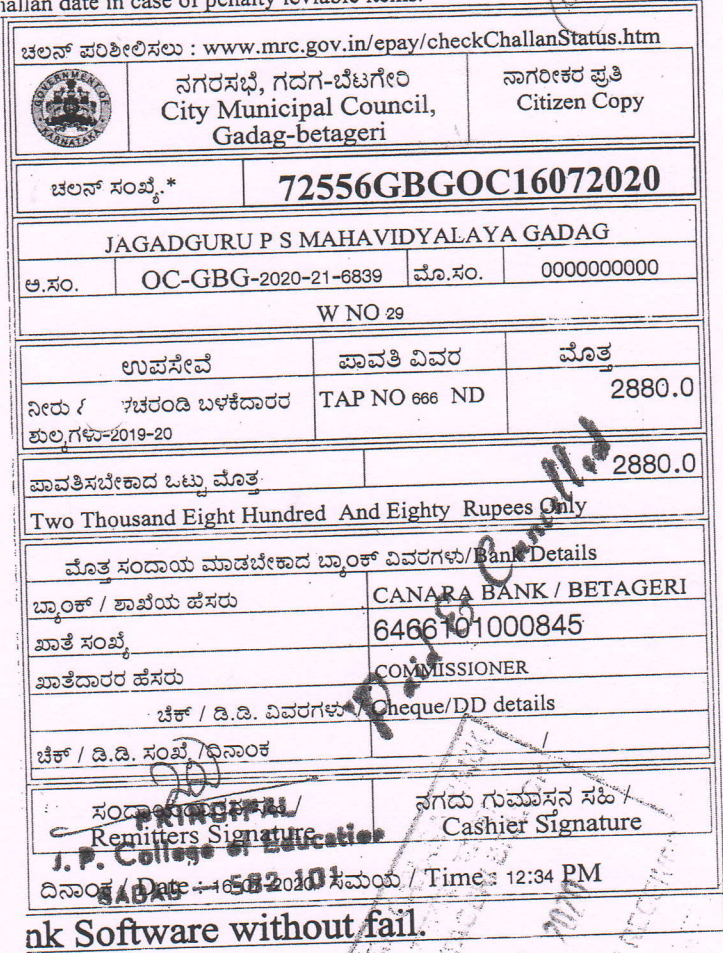 hallan date in case of penalty leviable items.
ಚಲನ್ ಪರಿಶೀಲಿಸಲು : www.mrc.gov.in/epay/checkChallanStatus.htm
GOVERNMENT OF KARNATAKA
ನಗರಸಭೆ, ಗದಗ-ಬೆಟಗೇರಿ
City Municipal Council,
Gadag-betageri
ನಾಗರೀಕರ ಪ್ರತಿ
Citizen Copy
ಚಲನ್ ಸಂಖ್ಯೆ.* 72556GBGOC16072020
JAGADGURU P S MAHAVIDYALAYA GADAG
ಅ.ಸಂ. OC-GBG-2020-21-6839 ಮೊ.ಸಂ. 0000000000
W NO 29
ಉಪಸೇವೆ ಪಾವತಿ ವಿವರ ಮೊತ್ತ
ನೀರು ಬಳಕೆದಾರರ TAP NO 666 ND 2880.0
ಶುಲ್ಕಗಳು-2019-20
ಪಾವತಿಸಬೇಕಾದ ಒಟ್ಟು ಮೊತ್ತ 2880.0
Two Thousand Eight Hundred And Eighty Rupees Only
ಮೊತ್ತ ಸಂದಾಯ ಮಾಡಬೇಕಾದ ಬ್ಯಾಂಕ್ ವಿವರಗಳು/Bank Details
ಬ್ಯಾಂಕ್ / ಶಾಖೆಯ ಹೆಸರು CANARA BANK / BETAGERI
ಖಾತೆ ಸಂಖ್ಯೆ 6466101000845
ಖಾತೆದಾರರ ಹೆಸರು COMMISSIONER
Paid & Cancelled
ಚೆಕ್ / ಡಿ.ಡಿ. ವಿವರಗಳು / Cheque/DD details
ಚೆಕ್ / ಡಿ.ಡಿ. ಸಂಖ್ಯೆ /ದಿನಾಂಕ /
ಸಹಿ / ನಗದು ಗುಮಾಸ್ತನ ಸಹಿ /
Remitters Signature Cashier Signature
PRINCIPAL
J. P. College of Education
GADAG - 582 101
ದಿನಾಂಕ / Date : 16-07-2020 ಸಮಯ / Time : 12:34 PM
nk Software without fail.